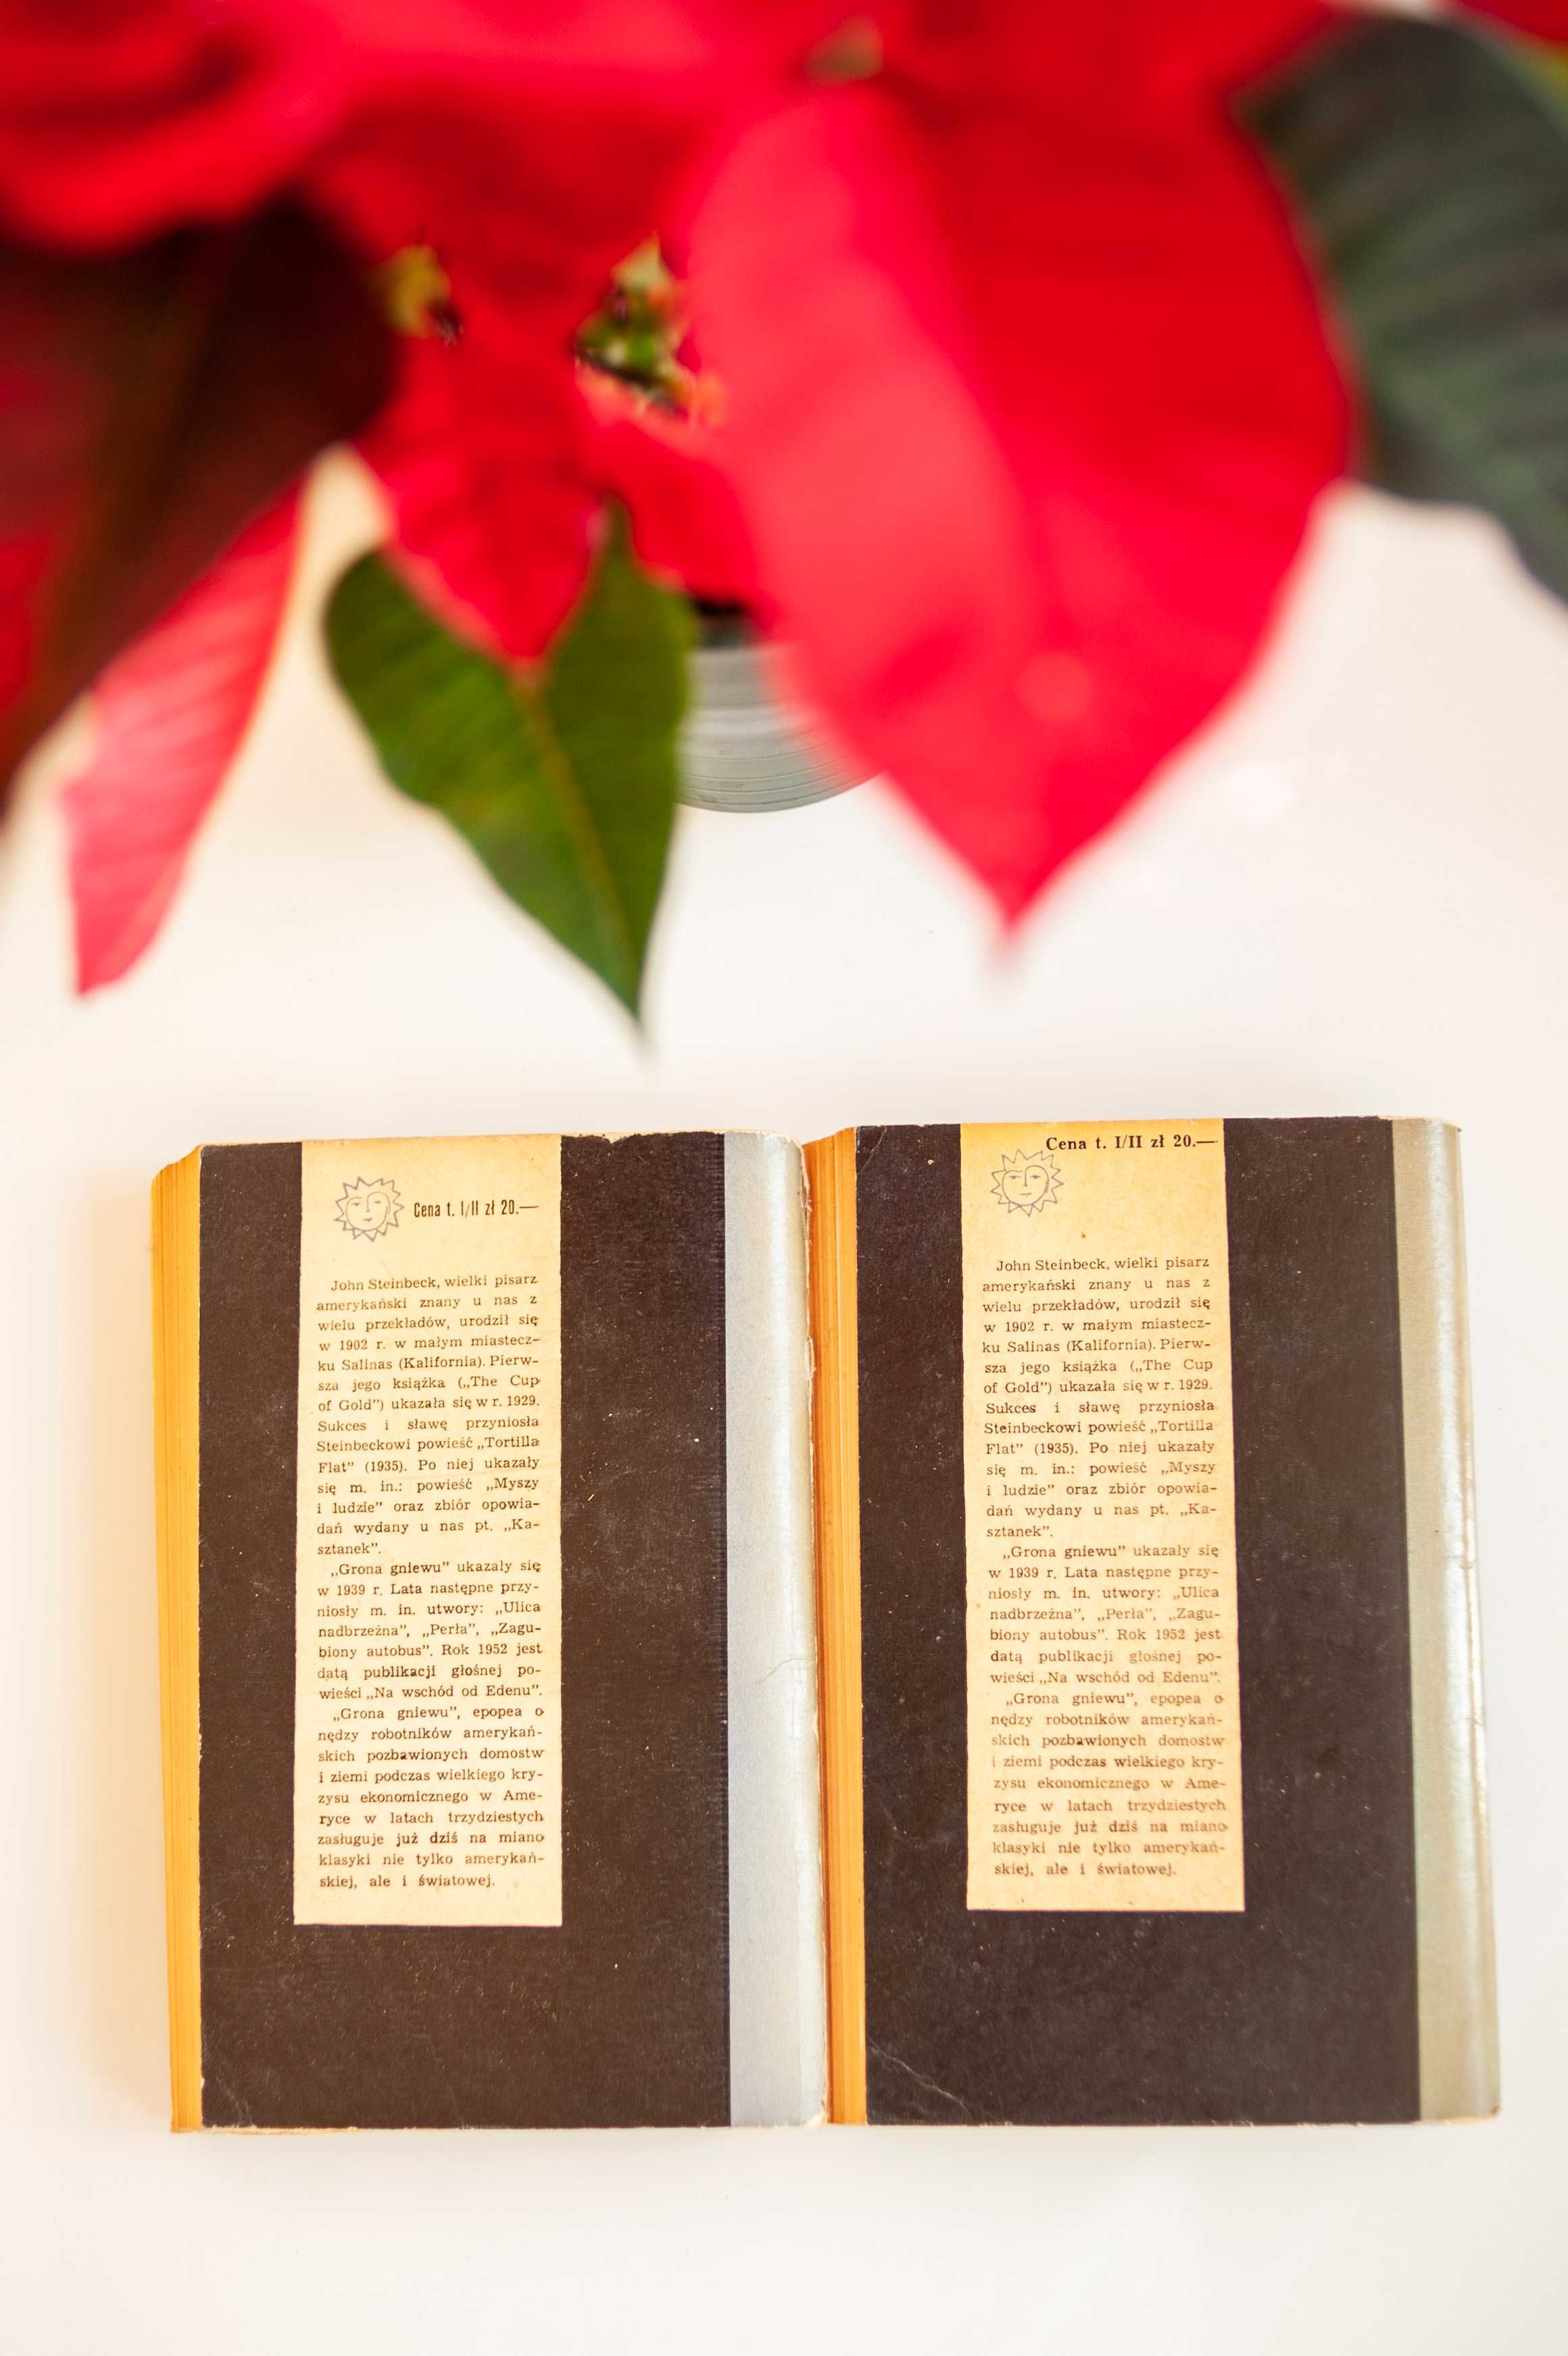 Cena t. I/II zł 20.—
John Steinbeck, wielki pisarz
amerykański znany u nas z
wielu przekładów, urodził się
w 1902 r. w małym miastecz-
ku Salinas (Kalifornia). Pierw-
sza jego książka („The Cup
of Gold”) ukazała się w r. 1929.
Sukces i sławę przyniosła
Steinbeckowi powieść „Tortilla
Flat” (1935). Po niej ukazały
się m. in.: powieść „Myszy
i ludzie” oraz zbiór opowia-
dań wydany u nas pt. „Ka-
sztanek”.
„Grona gniewu” ukazały się
w 1939 r. Lata następne przy-
niosły m. in. utwory: „Ulica
nadbrzeżna”, „Perła”, „Zagu-
biony autobus”. Rok 1952 jest
datą publikacji głośnej po-
wieści „Na wschód od Edenu”.
„Grona gniewu”, epopea o
nędzy robotników amerykań-
skich pozbawionych domostw
i ziemi podczas wielkiego kry-
zysu ekonomicznego w Ame-
ryce w latach trzydziestych
zasługuje już dziś na miano
klasyki nie tylko amerykań-
skiej, ale i światowej.
Cena t. I/II zł 20.—
John Steinbeck, wielki pisarz
amerykański znany u nas z
wielu przekładów, urodził się
w 1902 r. w małym miastecz-
ku Salinas (Kalifornia). Pierw-
sza jego książka („The Cup
of Gold”) ukazała się w r. 1929.
Sukces i sławę przyniosła
Steinbeckowi powieść „Tortilla
Flat” (1935). Po niej ukazały
się m. in.: powieść „Myszy
i ludzie” oraz zbiór opowia-
dań wydany u nas pt. „Ka-
sztanek”.
„Grona gniewu” ukazały się
w 1939 r. Lata następne przy-
niosły m. in. utwory: „Ulica
nadbrzeżna”, „Perła”, „Zagu-
biony autobus”. Rok 1952 jest
datą publikacji głośnej po-
wieści „Na wschód od Edenu”.
„Grona gniewu”, epopea o
nędzy robotników amerykań-
skich pozbawionych domostw
i ziemi podczas wielkiego kry-
zysu ekonomicznego w Ame-
ryce w latach trzydziestych
zasługuje już dziś na miano
klasyki nie tylko amerykań-
skiej, ale i światowej.